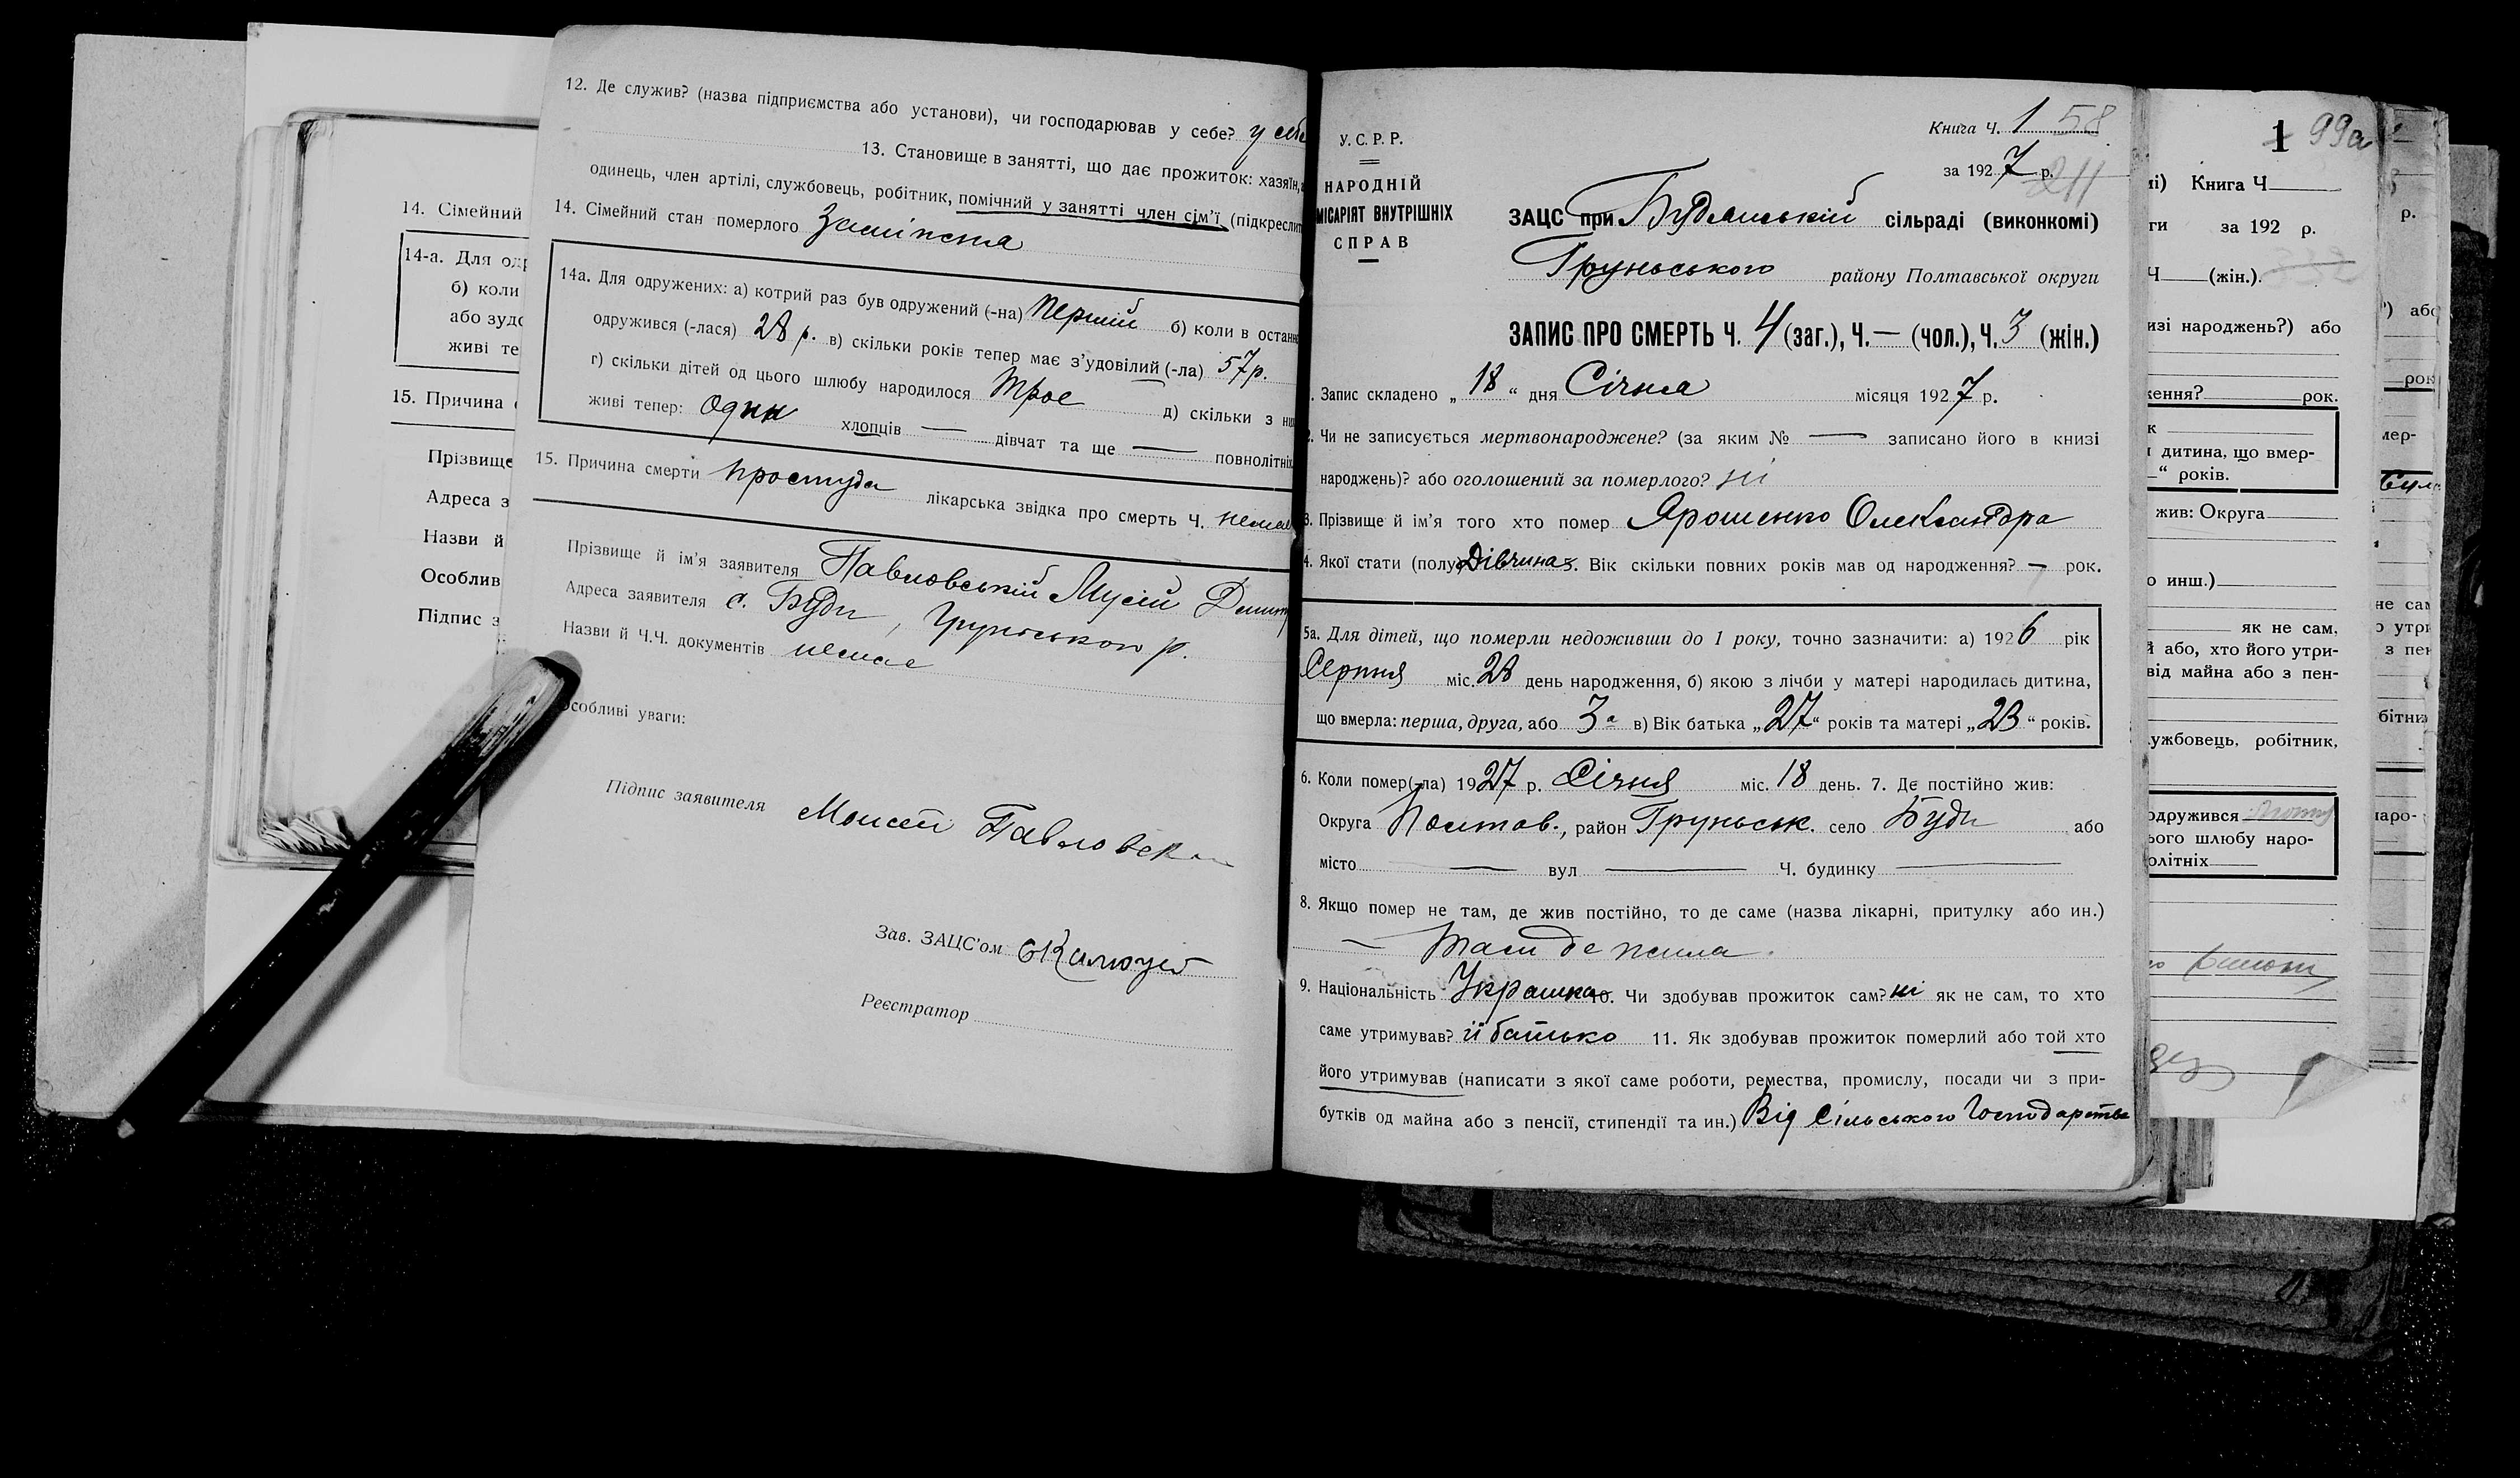 14. Сімейний
14-а. Для од
б) коли
або зудо
живі те
15. Причина
Прізвище
Адреса з
Назви й
Особлив
Підпис з
12. Де служив? (назва підприємства або установи), чи господарював у себе? у себе
13. Становище в занятті, що дає прожиток: хазяїн,
одинець, член артілі, службовець, робітник, помічний у занятті член сім'ї (підкреслит
14. Сімейний стан померлого Заміжня
14а. Для одружених: а) котрий раз був одружений (-на) перший б) коли в останн
одружився (-лася) 28 р. в) скільки років тепер має з'удовілий (-ла) 57 р.
г) скільки дітей од цього шлюбу народилося трое д) скільки з них
живі тепер: один хлопців — дівчат та ще — повнолітніх
15. Причина смерти простуда лікарська звідка про смерть Ч. немає
Прізвище й ім'я заявителя Павловській Мусій Дмит
Адреса заявителя с. Буди, Груньського р.
Назви й Ч.Ч. документів немае
Особливі уваги:
Підпис заявителя Моисей Павловск
Зав. ЗАЦС'ом
Реєстратор
Книга Ч. 1 58
У.С.Р.Р.
за 1927 р. 211
НАРОДНІЙ
МІСАРІЯТ ВНУТРІШНІХ
СПРАВ
ЗАЦС при Будянській сільраді (виконкомі)
Груньського району Полтавської округи
ЗАПИС ПРО СМЕРТЬ Ч. 4 (заг.), Ч. — (чол.), Ч. 3 (жін.)
. Запис складено „ 18 “ дня Січня місяця 1927 р.
2. Чи не записується мертвонароджене? (за яким № — записано його в книзі
народжень)? або оголошений за померлого? ні
3. Прізвище й ім'я того хто помер Ярошенко Олександра
4. Якої стати (полу) Дівчина 5. Вік скільки повних років мав од народження? — рок.
5а. Для дітей, що померли недоживши до 1 року, точно зазначити: а) 1926 рік
Серпня міс. 28 день народження, б) якою з лічби у матері народилась дитина,
що вмерла: перша, друга, або 3а в) Вік батька „27“ років та матері „23“ років.
6. Коли помер(-ла) 1927 р. Січня міс. 18 день. 7. Де постійно жив:
Округа Полтав., район Груньськ. село Буди або
місто — вул — Ч. будинку —
8. Якщо помер не там, де жив постійно, то де саме (назва лікарні, притулку або ин.)
— там де жила.
9. Національність Українка 10. Чи здобував прожиток сам? ні як не сам, то хто
саме утримував? її батько 11. Як здобував прожиток померлий або той хто
його утримував (написати з якої саме роботи, ремества, промислу, посади чи з при-
бутків од майна або з пенсії, стипендії та ин.) Від Сільського Господарства
1 99а
Книга Ч
за 192 р.
Ч (жін.).
изі народжень?) або
ження? рок.
дитина, що вмер-
“ років.
жив: Округа
о инш.)
як не сам,
й або, хто його утри-
від майна або з пен-
ужбовець, робітник,
одружився
ього шлюбу наро-
олітніх
р.
або
рок
мер-
не сам
утри
з пен
бітник
наро-